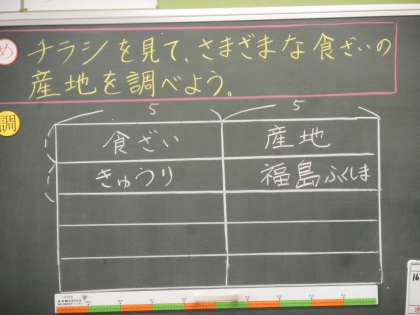 め
チラシを見て、さまざまな食ざいの
産地を調べよう。
調
5 5
食ざい 産地
きゅうり 福島ふくしま